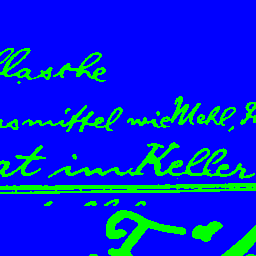 lasche
smittel wie Mehl,
at im Keller